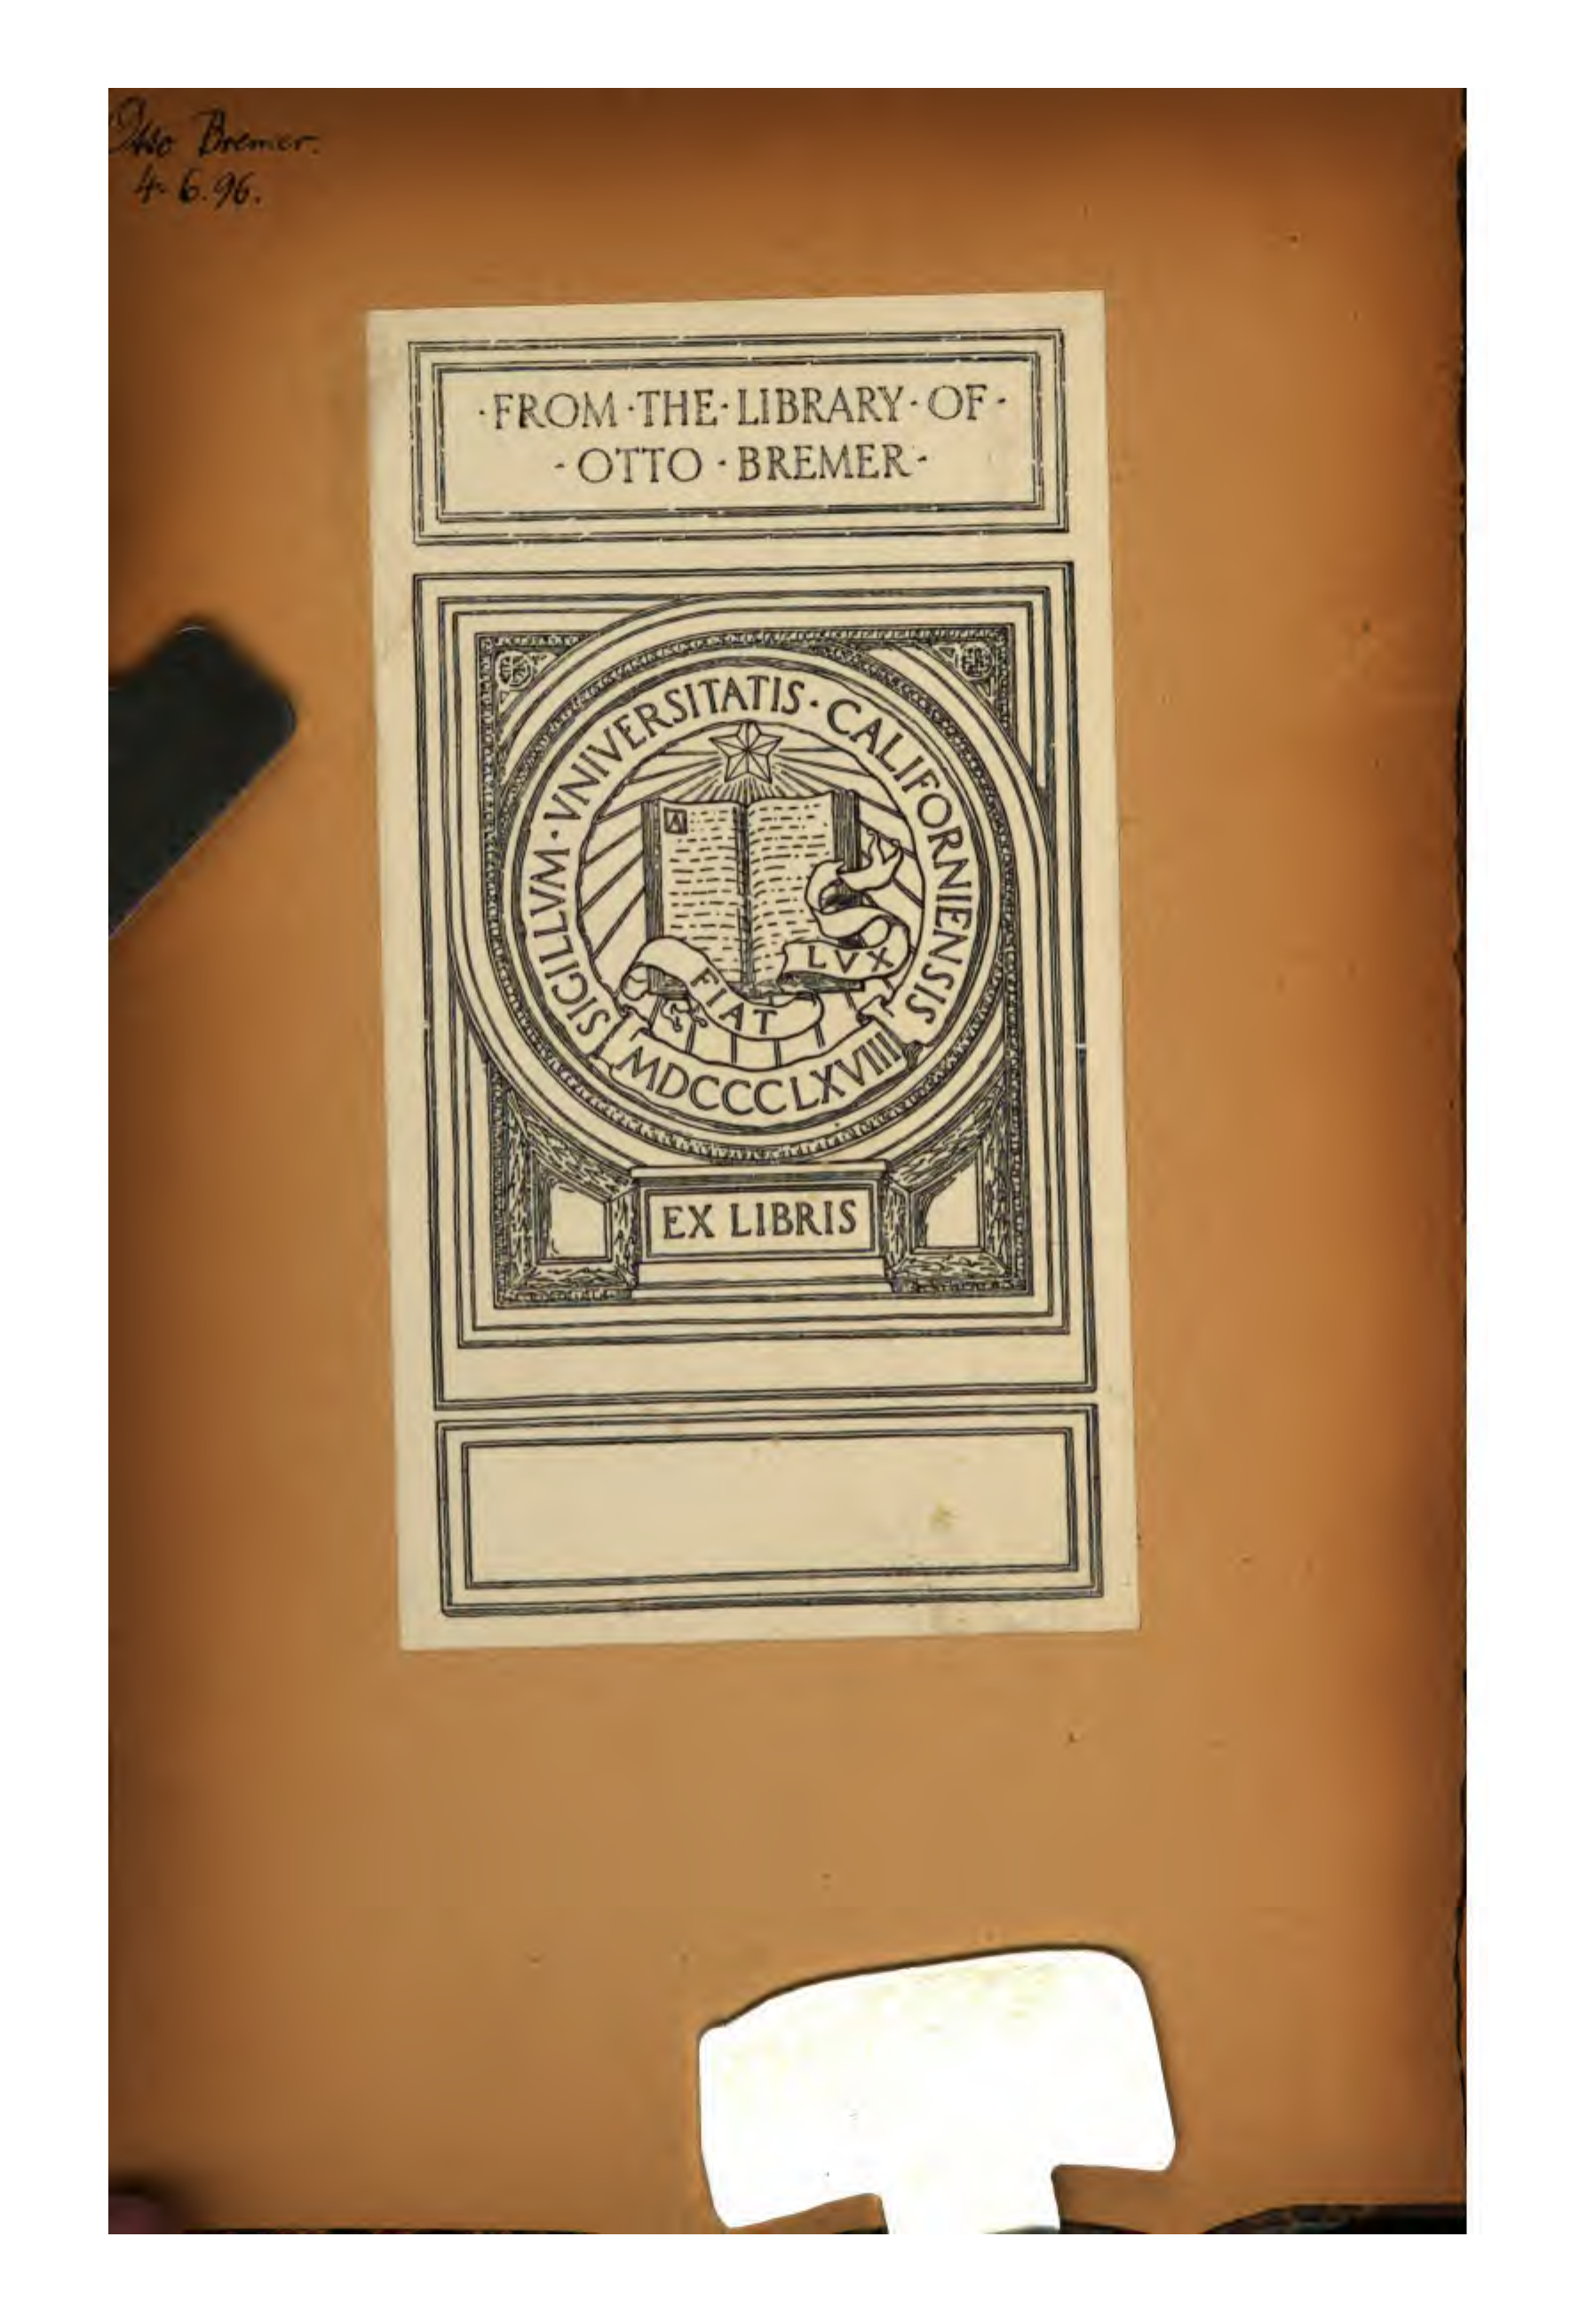 Otto Bremer.
4. 6. 96.
·FROM·THE·LIBRARY·OF·
·OTTO·BREMER·
SIGILLVM·VNIVERSITATIS·CALIFORNIENSIS
A
FIAT LVX
MDCCCLXVIII
EX LIBRIS